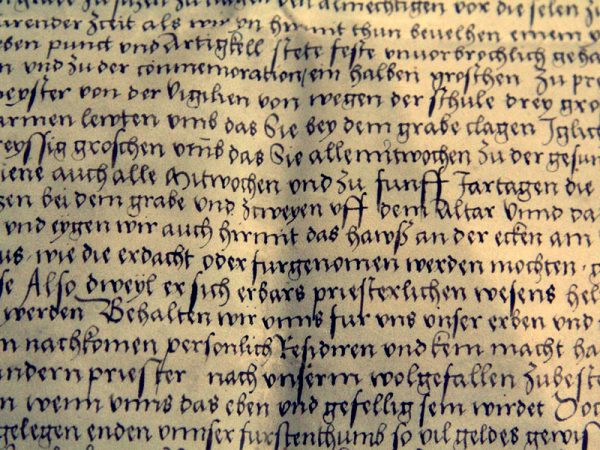 zu tagen an almechtigen vor die selen zu
zceit als wir yn hirmit thun bevelhen einem
punct und Artigkell stete feste unvorbrochlich geha
n und zu der conmemoration ein halben groschen zu pre
eyster von der Vigilien von wegen der schule drey gro
armen lewten umb das Sie bey dem grabe clagen Iglich
reyssig groschen umb das Sie alle mitwochen zu der gesun
iene auch alle Mitwochen und zu funff Jartagen die
zen bei dem grabe und zcweyen uff dem Altar Unnd da
und eygen wir auch hirmit das hawß an der ecken am
us wie die erdacht oder furgenomen werden mochten
se Also dweyl er sich erbars priesterlichen wesens hel
werden Behalten wir unns fur uns unser erben und
n nachkomen personlich Residiren und kein macht ha
ndern priester nach unserm wolgefallen zubeste
n wenn unns das eben und gefellig sein wirdet Doc
gelegen enden unnser furstenthumb so vil geldes gewis